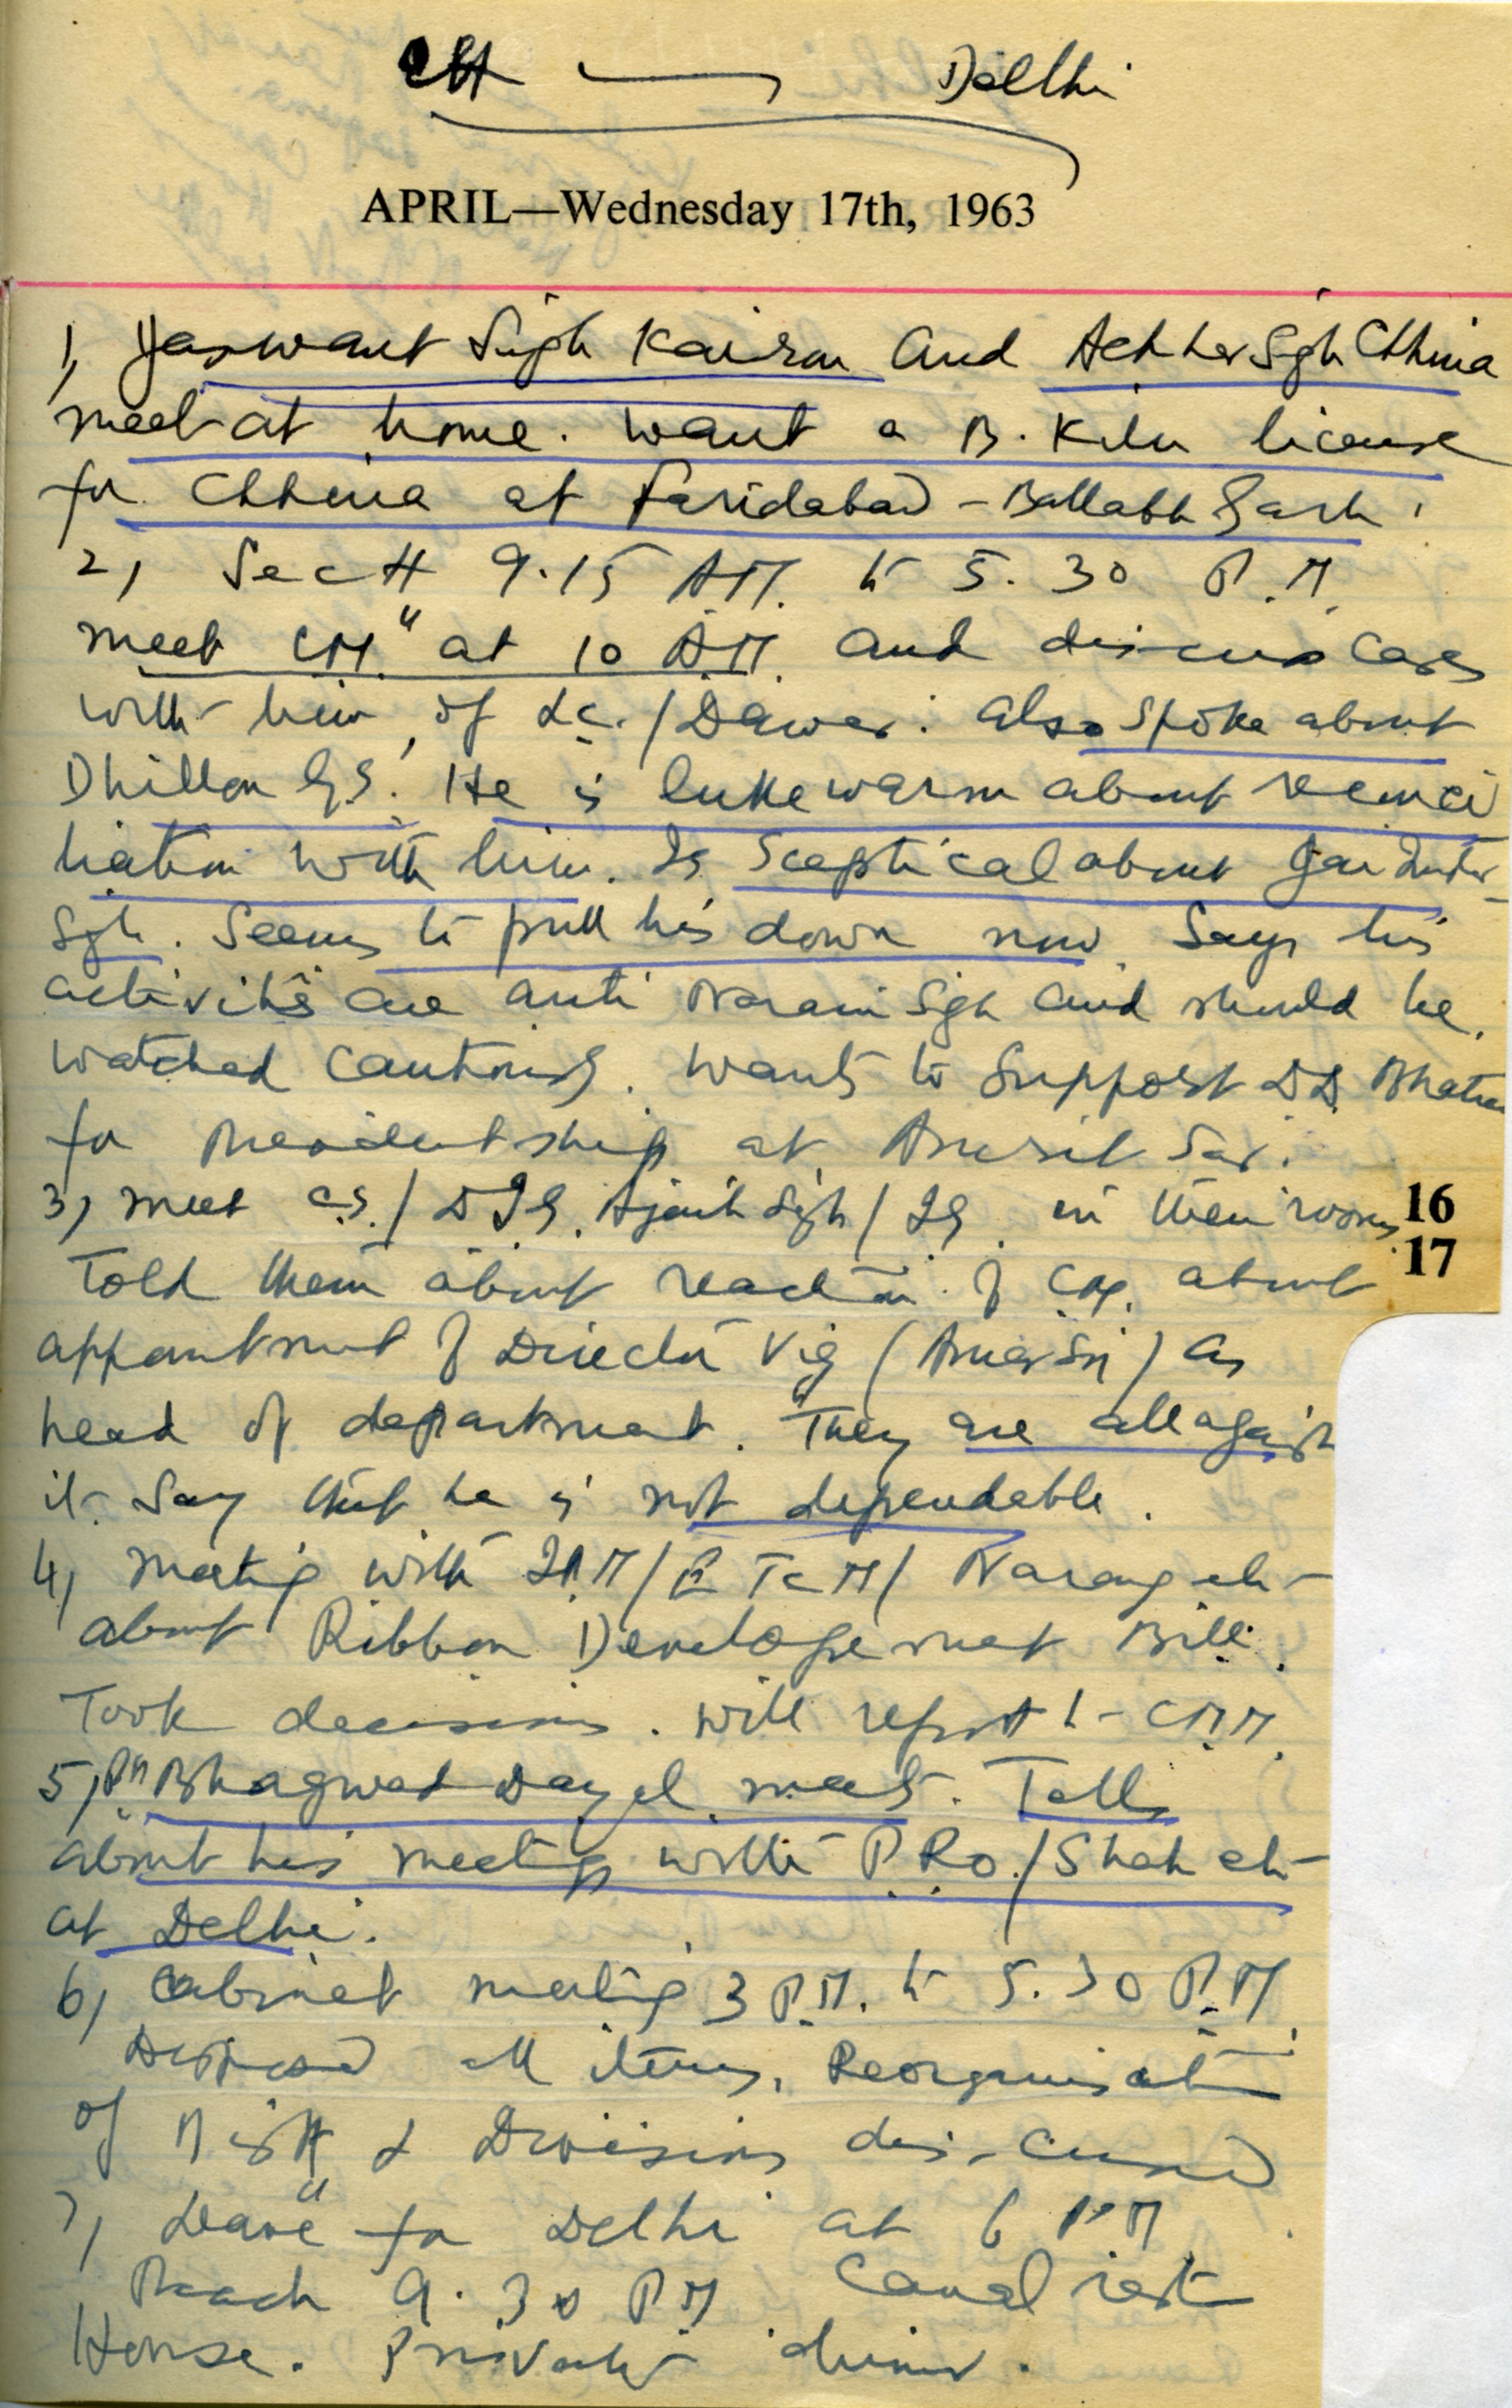 Delhi
APRIL—Wednesday 17th, 1963
1, Jaswant Singh Kairon and Achher Sgh Chhina
meet at home. want a B. Kiln license
for Chhina at Faridabad - Ballabh Garh.
2, Sectt 9.15 A.M. to 5.30 P.M.
meet CM. at 10 A.M. and discuss cases
with him, of Lc./Dawer. also spoke about
Dhillon G.S. He is lukkewarm about reconci
liation with him. Is sceptical about Jai Inder
Sgh. Seems to pull his down now. Says his
activities are anti Narain Sgh and should be
watched cautiously. wants to support DD. Bhatia
for Presidentship at Amrit Sar.
3, meet C.S./DIG. Ajaib Sigh/IG. in their rooms
Told them about reaction of CM. about
appointment of Director Vig (      ) as
head of department. They are all against
it. Say that he is not dependable.
16
17
4, meeting with I.P.M/E TcM/ Narang etc
about Ribbon Developemet Bill.
Took decisions. will report to C.M.M.
5, Pn Bhagwat Dayal meets. Tells
about his meeting with P.Ro./Shah etc
at Delhi.
6, Cabinet meeting 3 P.M. to 5.30 P.M.
Disposed all items. Reorganisation
of Distt & Divisions discussed
7, Leave for Delhi at 6 PM.
Reach 9.30 PM Canal rest
House. Private dinner.